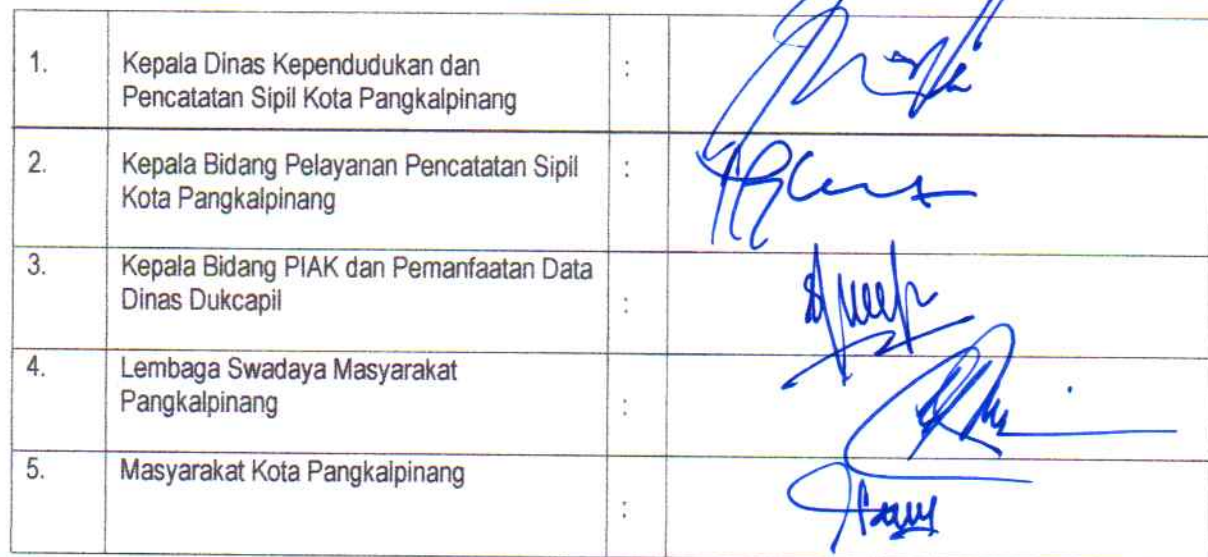 1. Kepala Dinas Kependudukan dan :
Pencatatan Sipil Kota Pangkalpinang
2. Kepala Bidang Pelayanan Pencatatan Sipil :
Kota Pangkalpinang
3. Kepala Bidang PIAK dan Pemanfaatan Data
Dinas Dukcapil :
4. Lembaga Swadaya Masyarakat
Pangkalpinang :
5. Masyarakat Kota Pangkalpinang
: